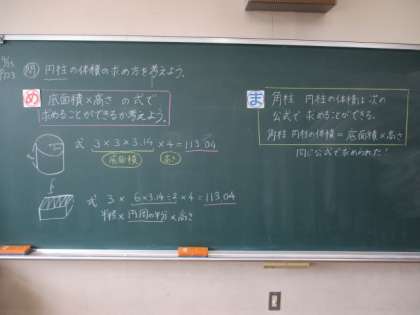 問 円柱の体積の求め方を考えよう。
め 底面積×高さ の式で
求めることができるか考えよう。
式 3×3×3.14×4=113.04
底面積 高さ
式 3×6×3.14÷2×4=113.04
半径×円周の半分×高さ
ま 角柱 円柱の体積は次の
公式で 求めることができる。
角柱 円柱の体積=底面積×高さ
同じ公式で求められた!